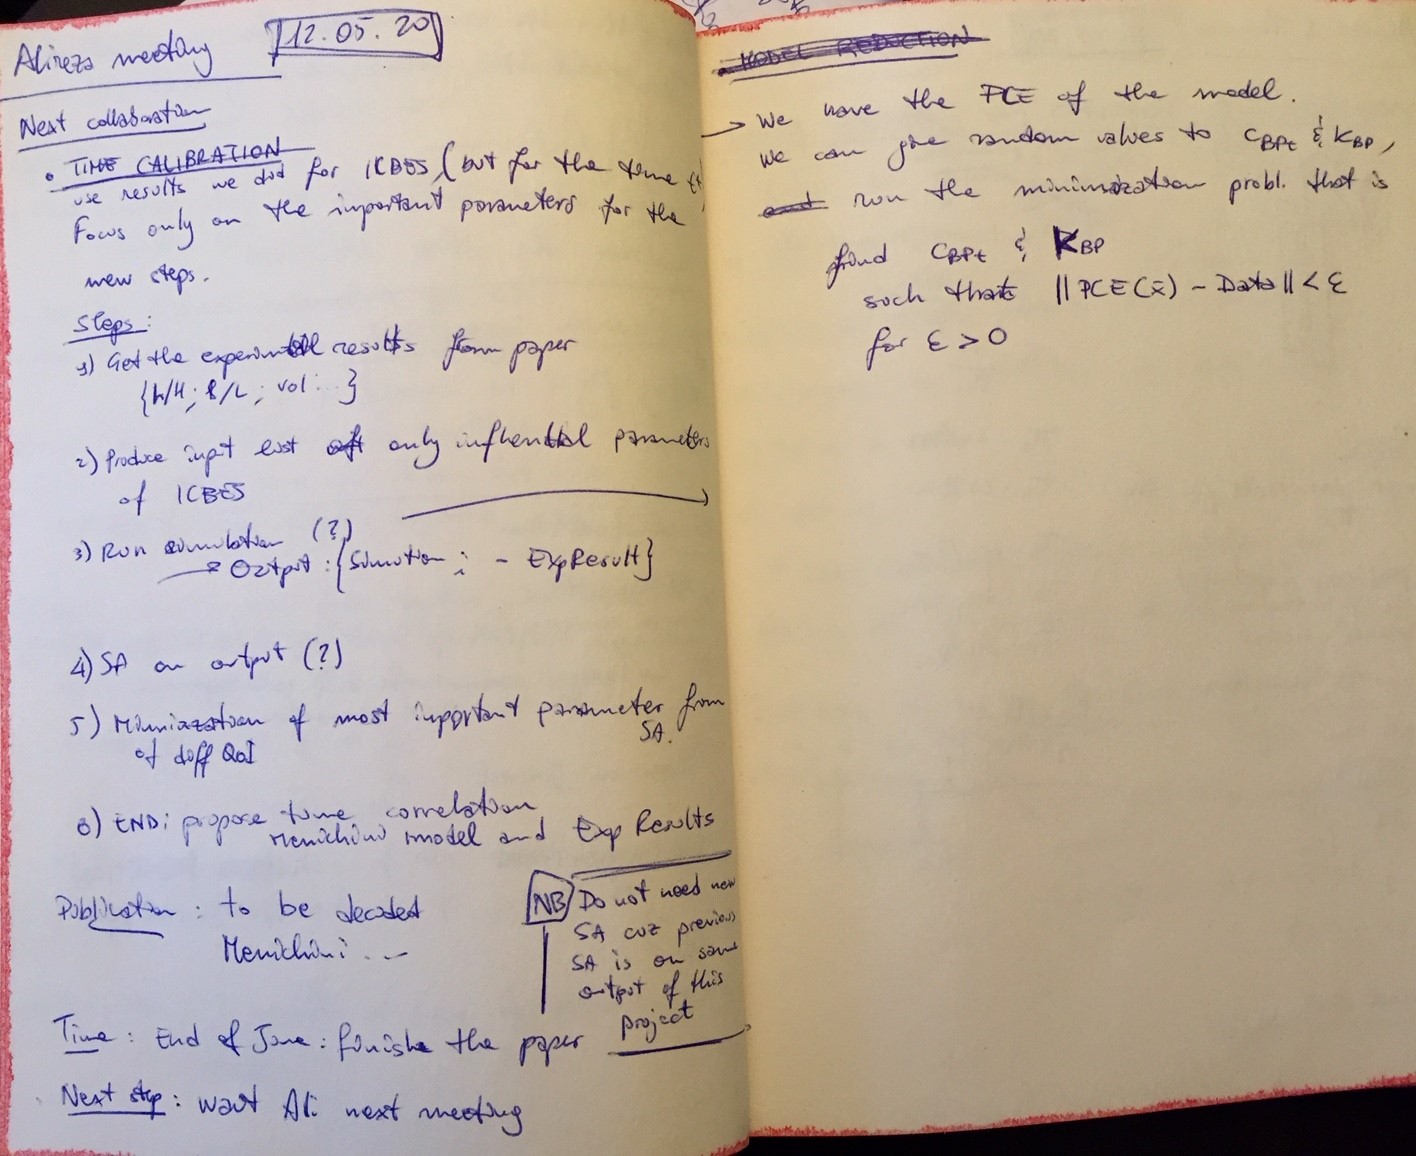 Alireza meeting
12.05.20
Next collaboration
• TIME CALIBRATION
use results we did for ICBES (but for the time
Focus only on the important parameters for the
new steps.
Steps:
1) Get the experimental results from paper
{h/H; l/L; vol...}
2) Produce input list of only influential parameters
of ICBES
3) Run simulation (?)
→ Output: {Simution i - ExpResult}
4) SA on output (?)
5) Minimization of most important parameter from
SA.
of diff QoI
6) END: propose time correlation
Menichini model and Exp Results
Publication: to be decided
Menichini...
NB Do not need new
SA cuz previous
SA is on same
output of this
project
Time: End of June: finishe the paper
Next step: wait Ali next meeting
• MODEL REDUCTION
→ We have the PCE of the model.
We can give random values to CBPt & KBP,
and run the minimization probl. that is
find CBPt & KBP
such that || PCE(x̄) - Data || < ε
for ε > 0